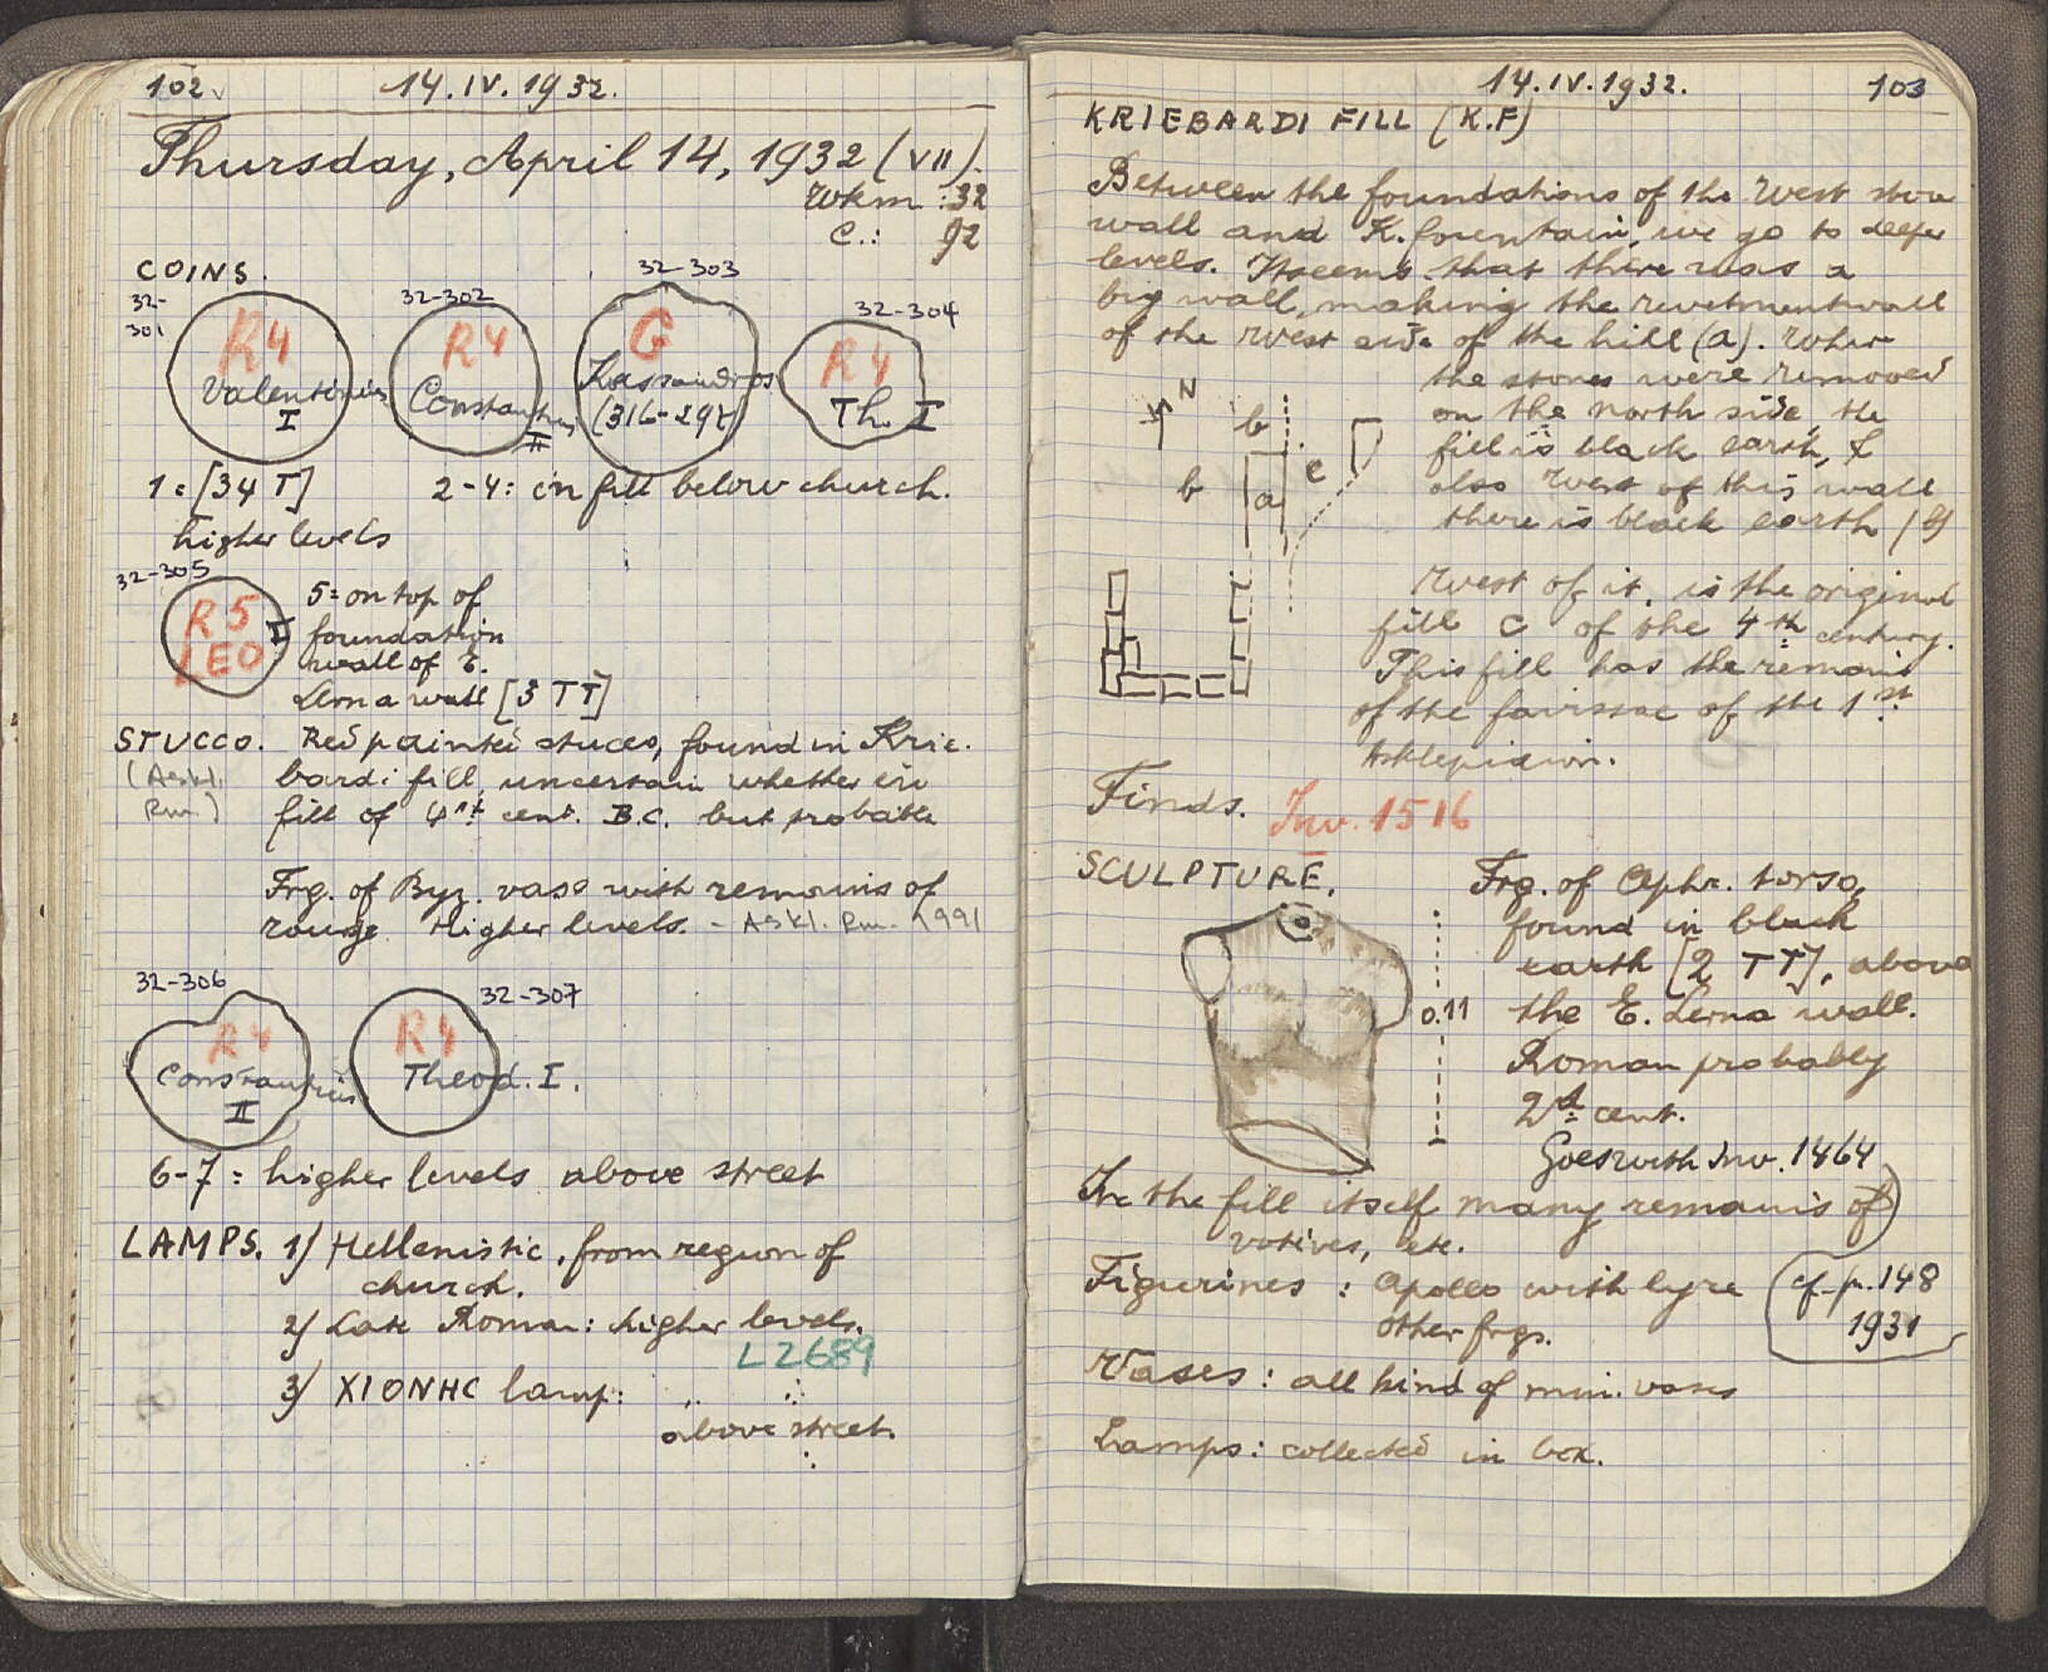 102
14.IV.1932.
Thursday, April 14, 1932 (VII).
Wkm.: 32
C.: 92
COINS.
32-301
R4
Valentinian
I
32-302
R4
Constantius
II
32-303
G
Kassandros
(316-297)
32-304
R4
Th. I
1 = [34 T]
higher levels
2-4: in fill below church.
32-305
R5
LEO I
5 = on top of
foundation
wall of E.
Lerna wall [3 TT]
STUCCO. Red painted stucco, found in Krie-
(Askl.
Rm.)
bardi fill, uncertain whether in
fill of 4th cent. B.C. but probable
Frg. of Byz. vase with remains of
rouge. Higher levels. - Askl. Rm. 1991
32-306
R4
Constantius
II
32-307
R4
Theod. I.
6-7 = higher levels above street
LAMPS. 1) Hellenistic, from region of
church.
2) Late Roman: higher levels.
L2689
3) XIONHC lamp: " "
above street.
14.IV.1932.
103
KRIEBARDI FILL (K.F)
Between the foundations of the West stoa
wall and K. fountain, we go to deeper
levels. It seems that there was a
big wall, making the revetmentwall
of the West side of the hill (a). When
the stones were removed
on the north side, the
fill is black earth, &
also West of this wall
there is black earth (b)
N
b
b
a
c
West of it, is the original
fill c of the 4th century.
This fill has the remains
of the favissae of the 1st
Asklepieion.
Finds. Inv. 1516
SCULPTURE.
Frg. of Aphr. torso,
found in black
earth [2 TT], above
the E. Lerna wall.
Roman probably
2d cent.
Goes with Inv. 1464
0.11
In the fill itself many remains of
votives, etc.
Figurines: Apollo with lyre
other frgs.
cf. p. 148
1931
Vases: all kind of min. vases
Lamps: collected in box.